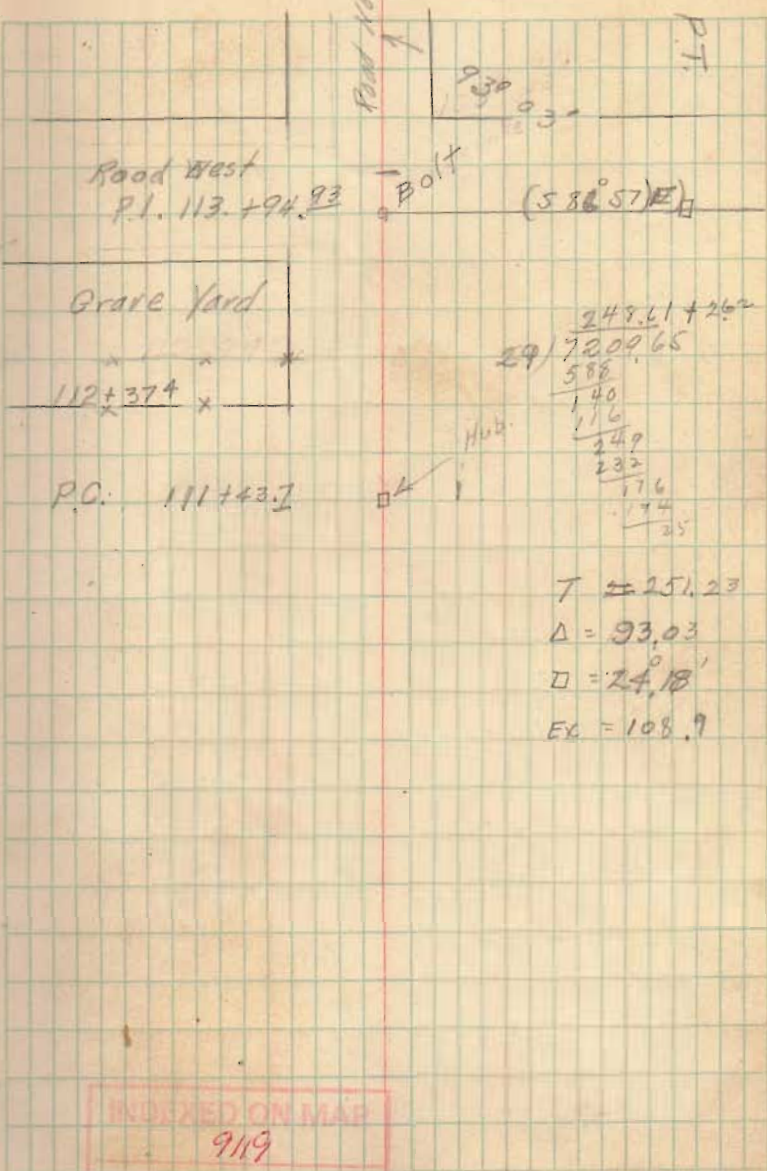 Road No
1
P.T.
930
030
Road West
P.I. 113.+94.93
Bolt
(S 86°57')E)
Grave Yard
112+374
P.C. 111+43.7
Hub.
248.61+262
29)7209.65
588
140
116
249
232
176
174
25
T = 251.23
Δ = 93,03
D = 24°,18'
Ex = 108.9
INDEXED ON MAP
9119